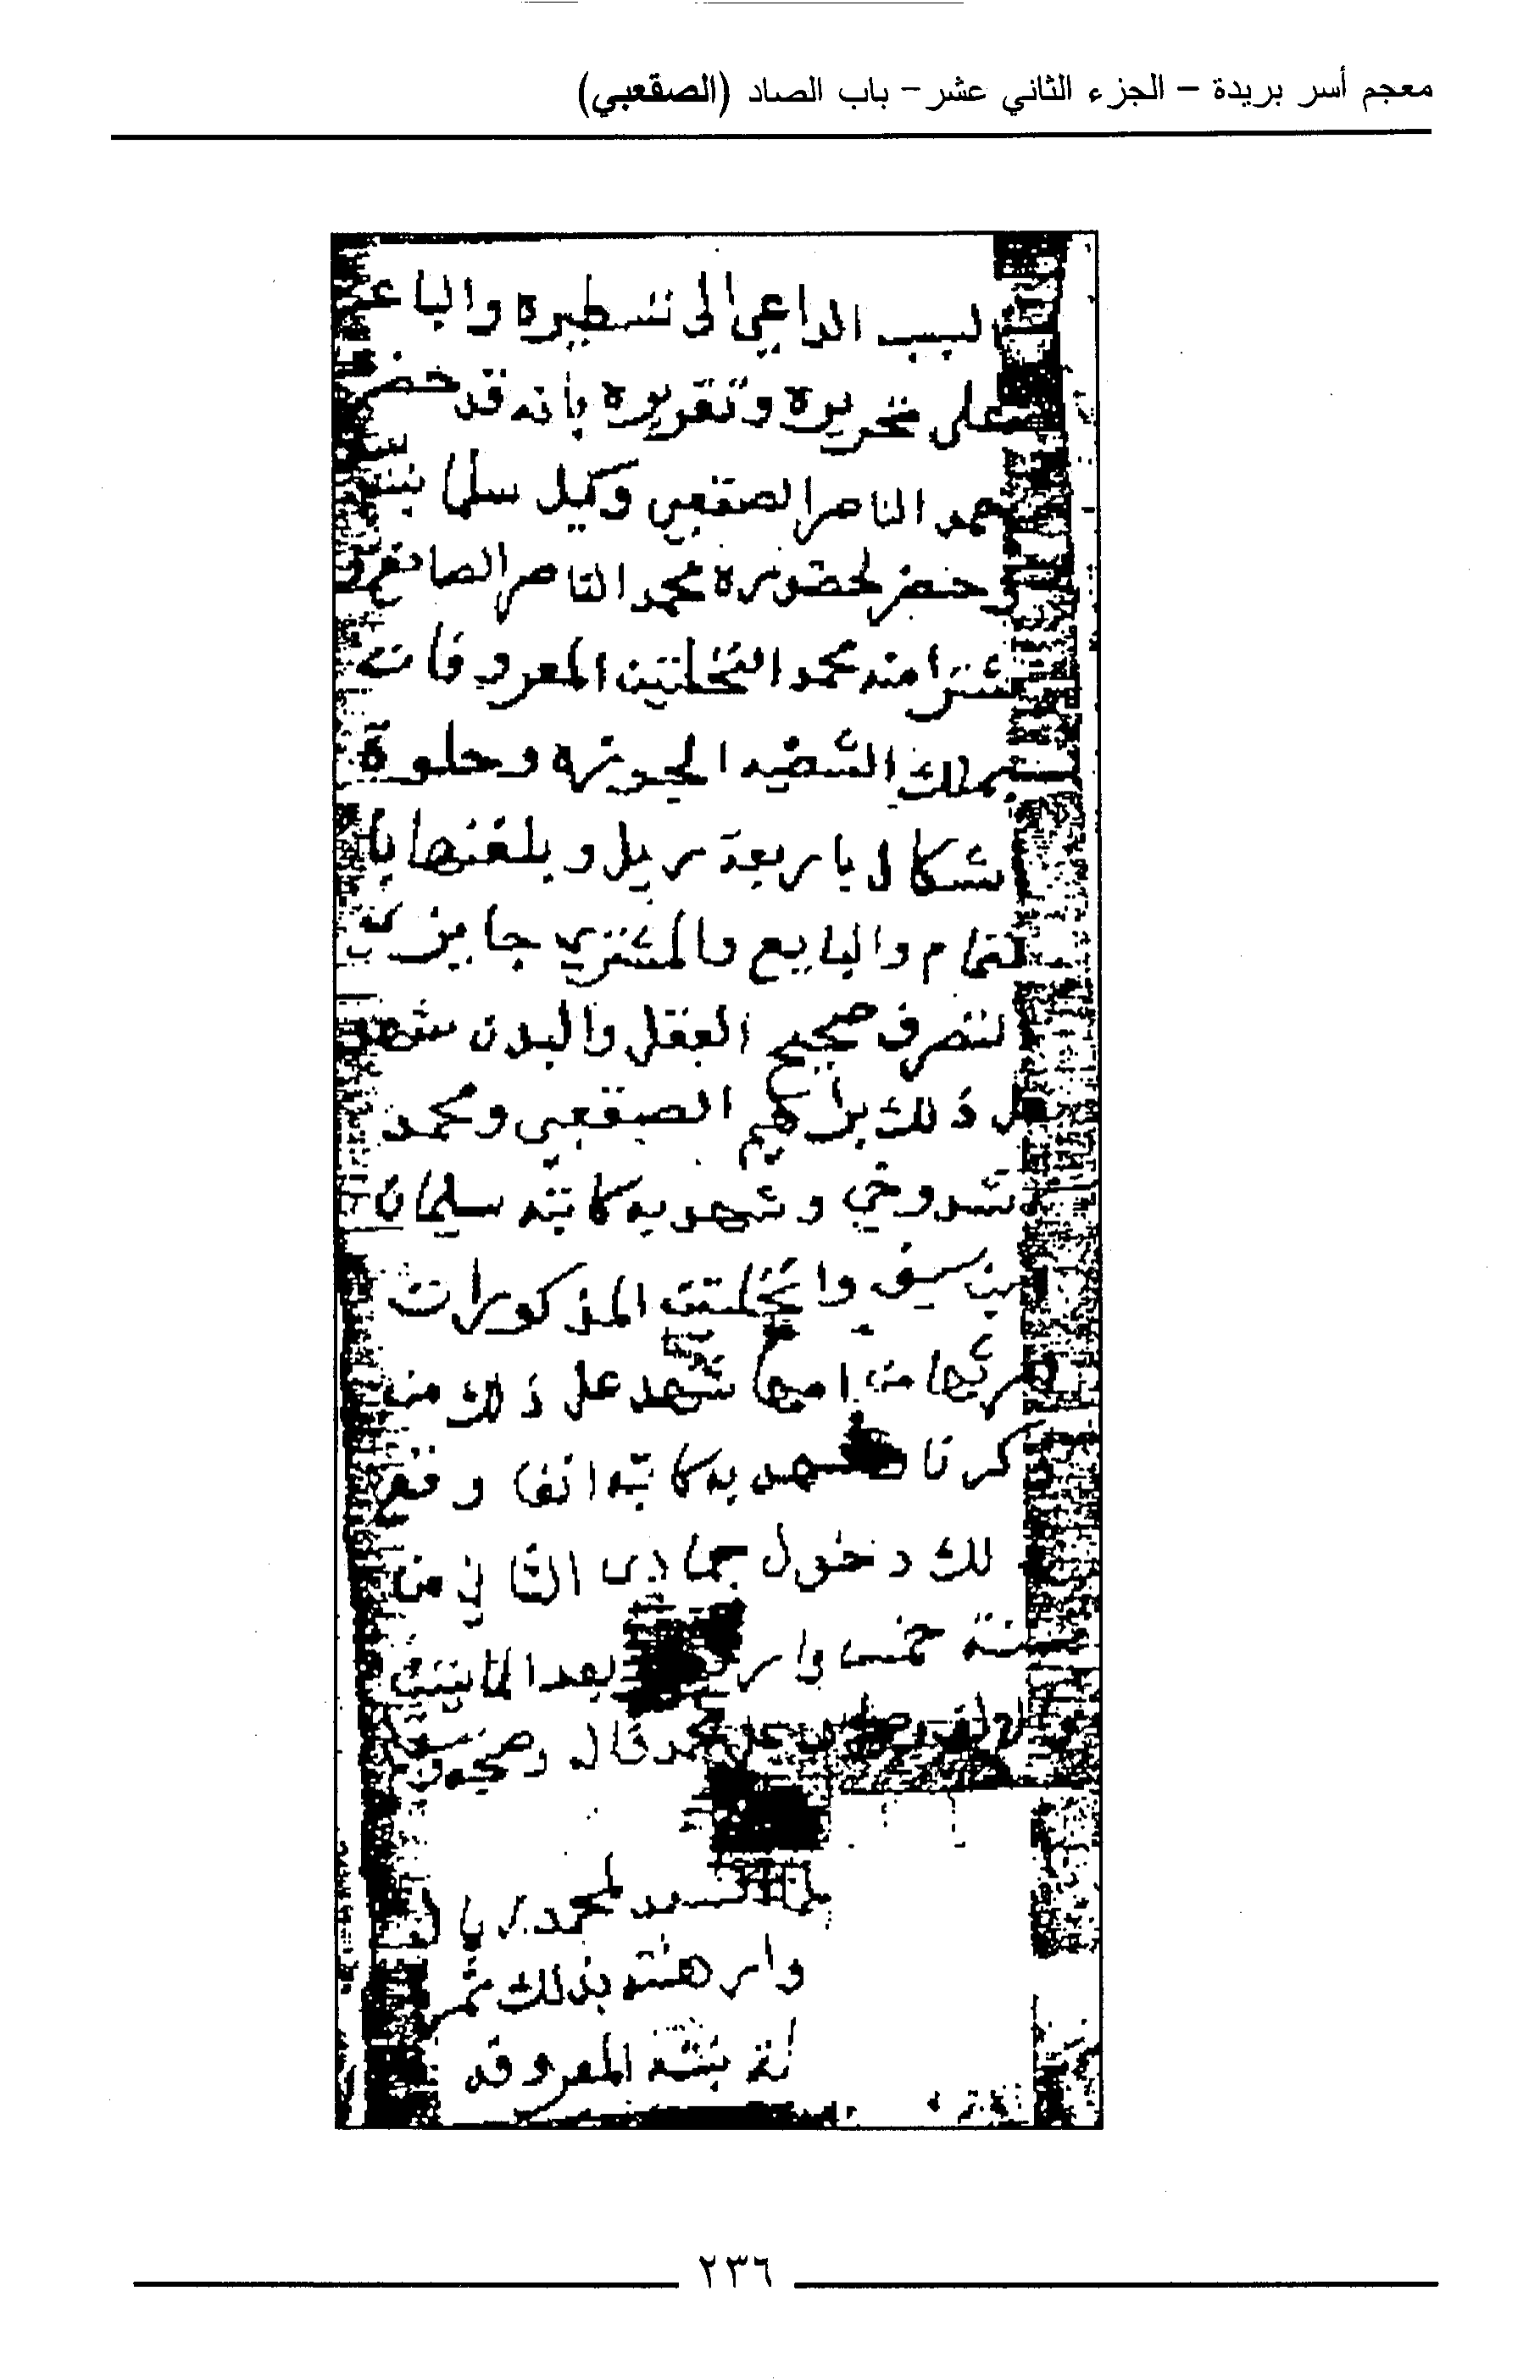 معجم أسر بريدة – الجزء الثاني عشر– باب الصاد (الصقعبي)
السبب الداعي الى تسطيره والباعث
على تحريره وتقريره بانه قد حضر
حمد الناصر الصقعبي وكيل سلما بنت
وحضر لحضوره محمد الناصر الصانع
منه محمد النخلتين المعروفات
بملك الجوزه وحلوة
شكال باربعة ريل وبلغنها با
لتمام والبايع والمشتري جايز
لتصرف صحيح العقل والبدن شهد
ذلك براهيم الصقعبي ومحمد
شدوخي وشهد به كاتبه سليمان
بن سيف والنخلتين المذكورات
من امها شهد على ذلك من
كرنا شهد به كاتبه انفا وقع
لك دخول جمادى الثاني من
سنة خمس بعد الماتين
محمد وال وصحبه وسلم
لمحمد
وارهنته بذلك ثمر
بنته المعروفه
٢٣٦